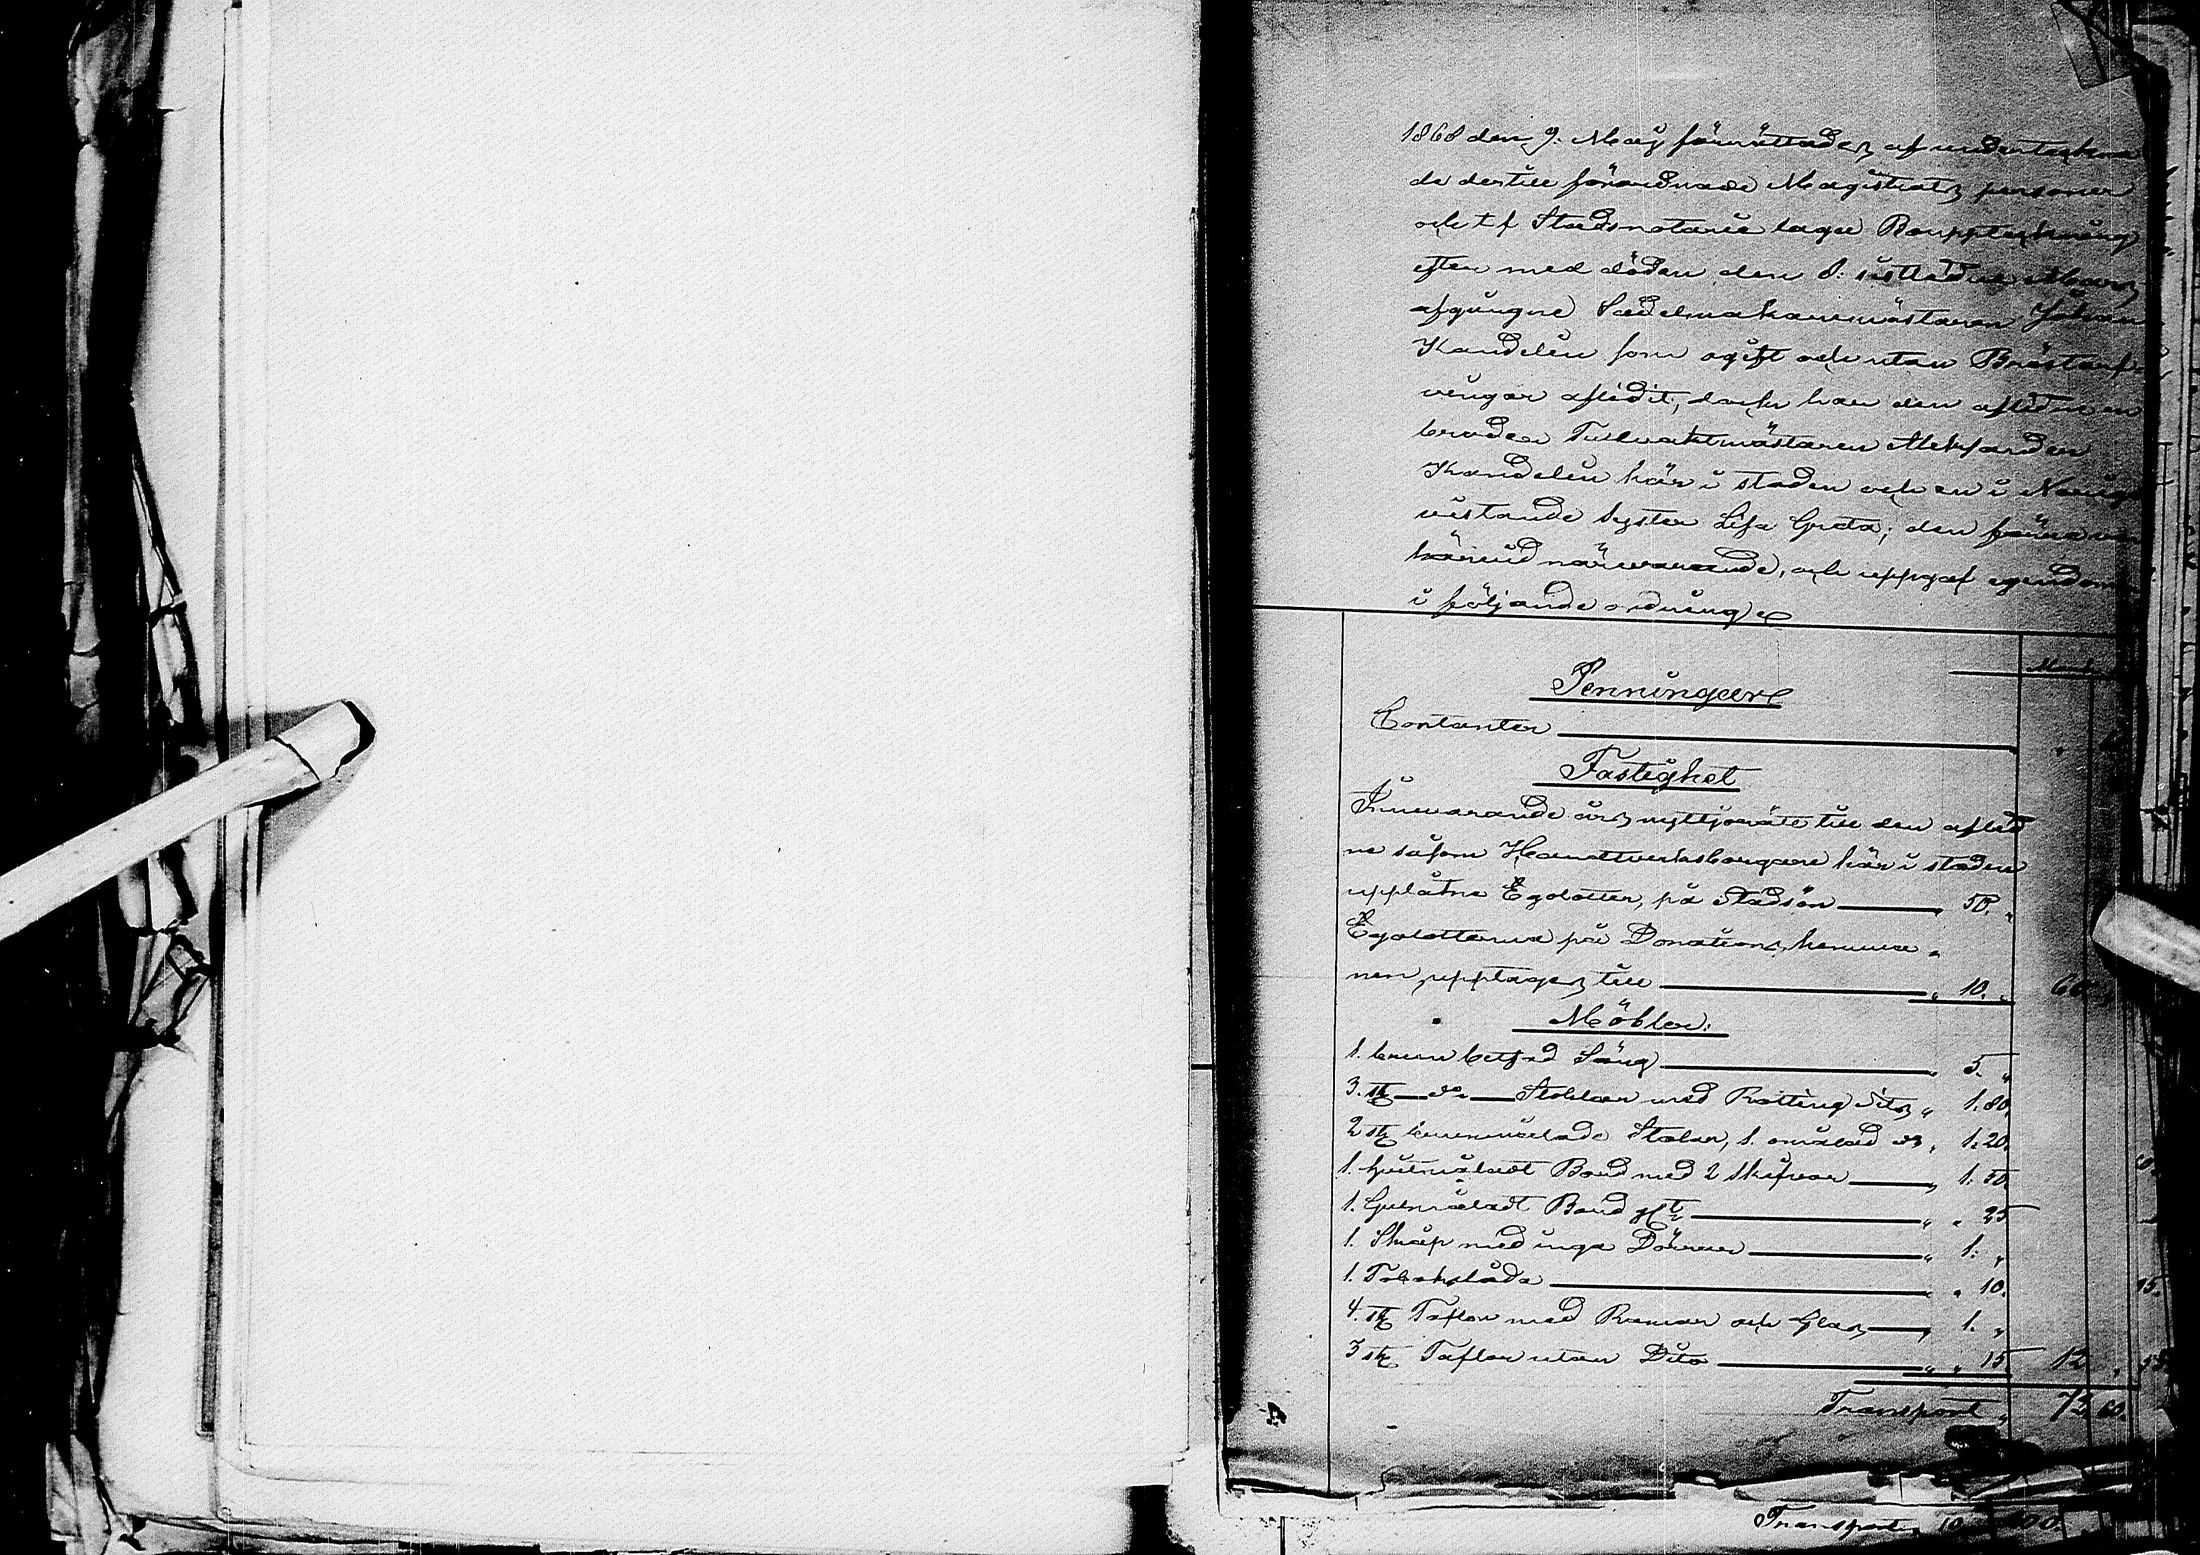 1868 den 9. Maj förrättades af underteckna
de dertill förordnade Magistrats personer
och t f Stadsnotarie laga Bouppteckning
efter med döden den 8: sistledne Mars
afgångne Sadelmakaremästaren Johan
Kandelin som ogift och utan Bröstarf
vingar aflidit, dock har den aflidne en
broder Tullvaktmästaren Alexander
Kandelin här i staden och en i Norige
vistande syster Lisa Greta; den förra
härvid närvarande, och uppgaf egendom
i följande ordning
Penningar
Contanter
Fastighet
Innevarande års nyttjorätt till den aflid
ne såsom Handtverksborgare här i staden
upplåtne Egolotter, på Stadsön " 50. "
Egolotterne på Donations hemma
nen, upptages till " 10. "
Möbler.
1. brun betsad Säng " 5. "
3. st do Stolar med Rotting sits " 1.80.
2 st brunmålade Stolar, 1. omålad " 1.20.
1. Gulmåladt Bord med 2 skifvor " 1.50.
1. Gulmåladt Bord " " 25
1. Skåp med inga Dörrar " 1. "
1. Tobakslåda " " 10.
4. st Taflor med Ramar och Glas " 1. "
3 st Taflor utan Dito " " 15. 12
Transport " 72 60.
Transport